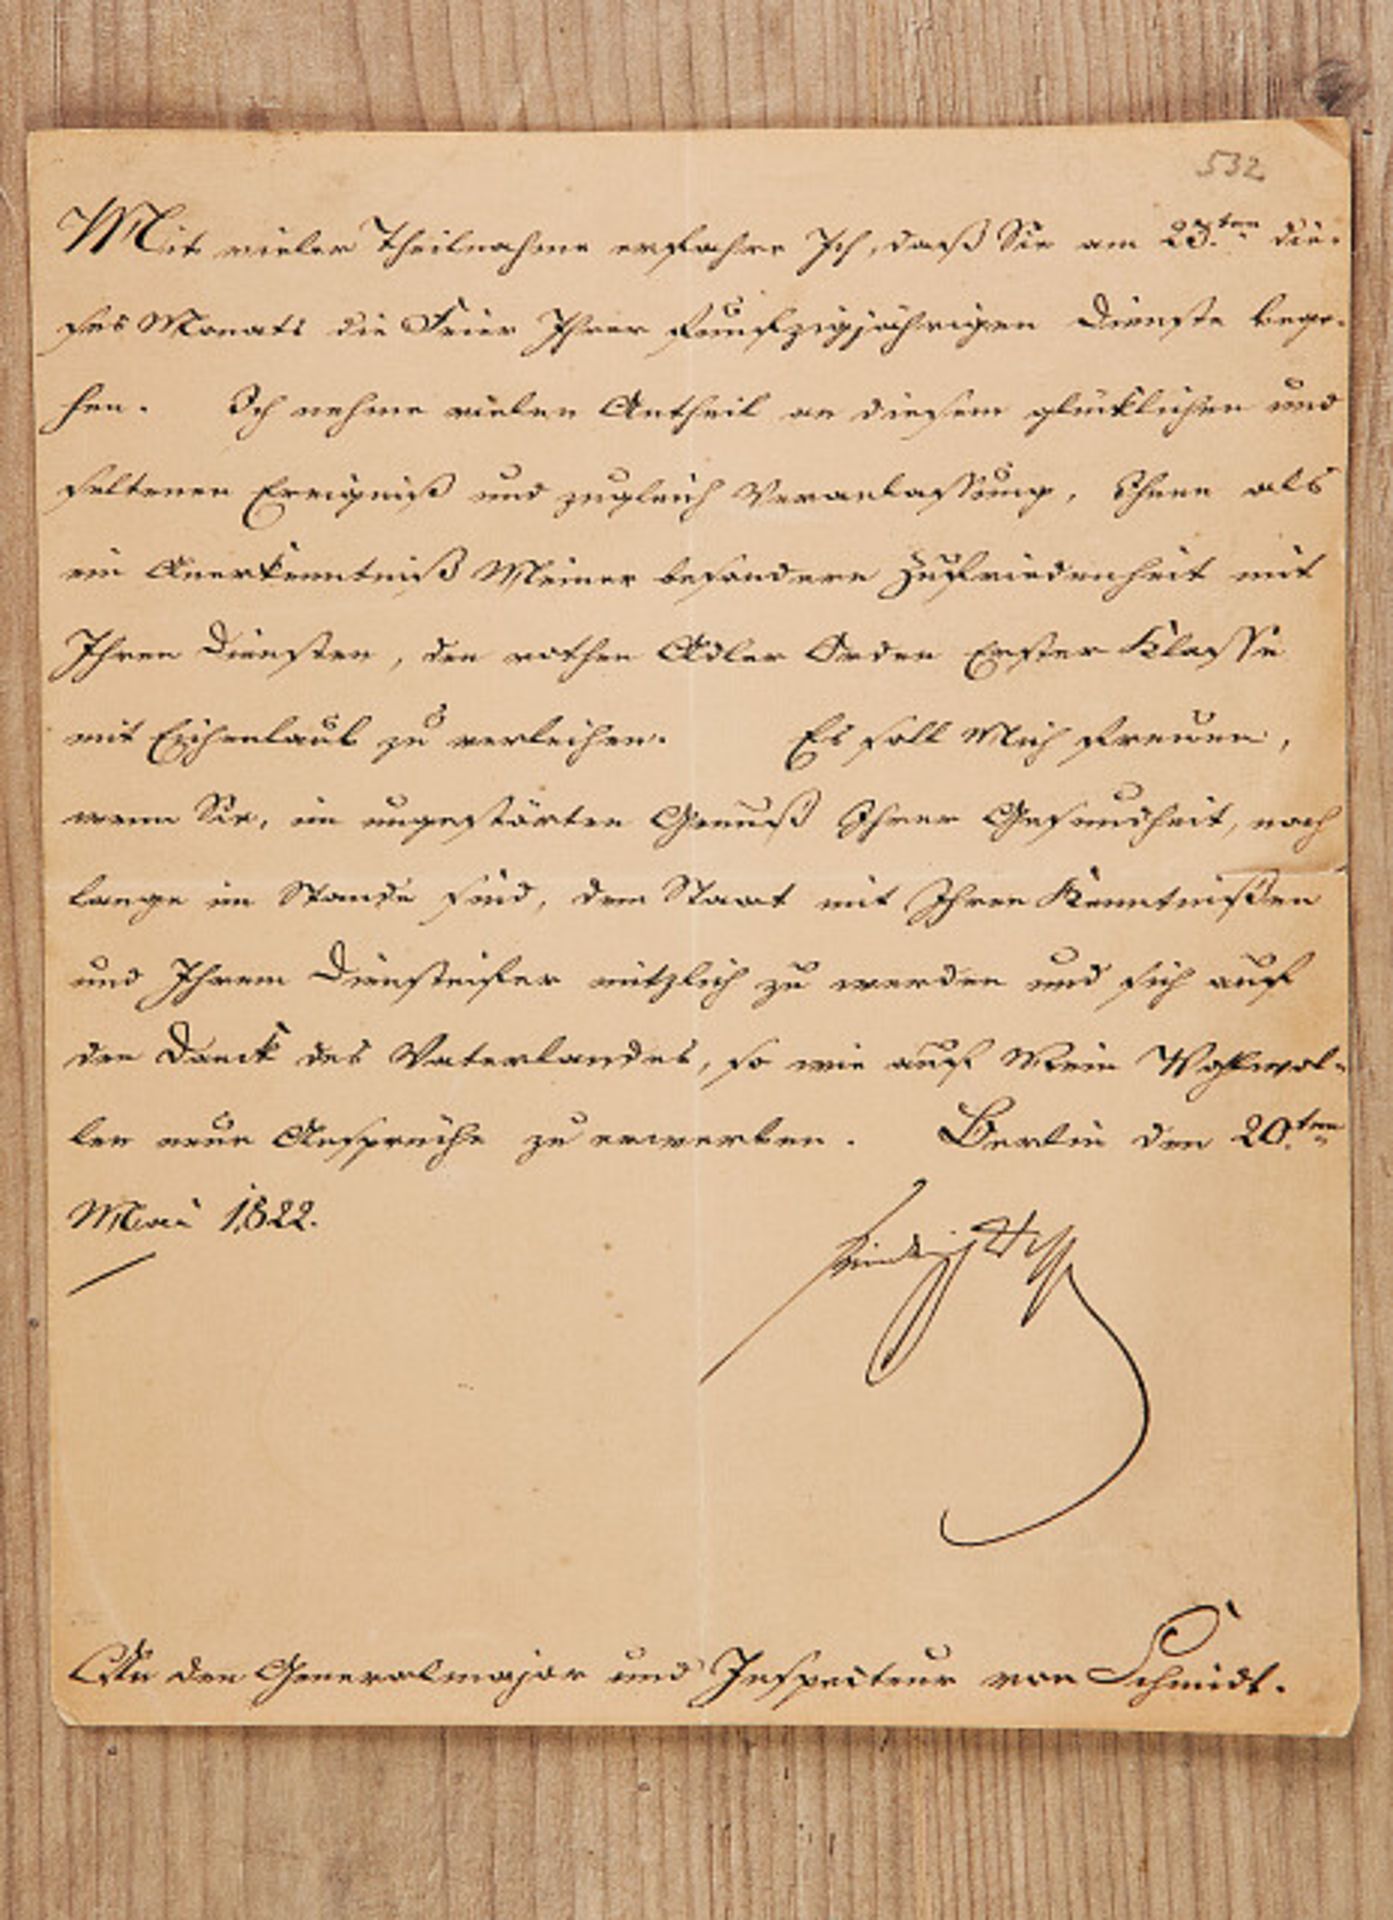 532
Mit vieler Theilnahme erfahre Ich, daß Sie am 23.ten die-
ses Monats die Feier Ihrer funfzigjährigen Dienste bege-
hen. Ich nehme vielen Antheil an diesem glücklichen und
seltenen Ereigniß und zugleich Veranlassung, Ihnen als
ein Anerkenntniß Meiner besondern Zufriedenheit mit
Ihren Diensten, den rothen Adler Orden Erster Klasse
mit Eichenlaub zu verleihen. Es soll Mich freuen,
wenn Sie, im ungestörten Genuß Ihrer Gesundheit, noch
lange im Stande sind, dem Staat mit Ihren Kenntnißen
und Ihrem Diensteifer nützlich zu werden und sich auf
den Danck des Vaterlandes, so wie auf Mein Wohlwol-
len neue Ansprüche zu erwerben. Berlin den 20.ten
Mai 1822.
An den Generalmajor und Inspecteur von Schmidt.